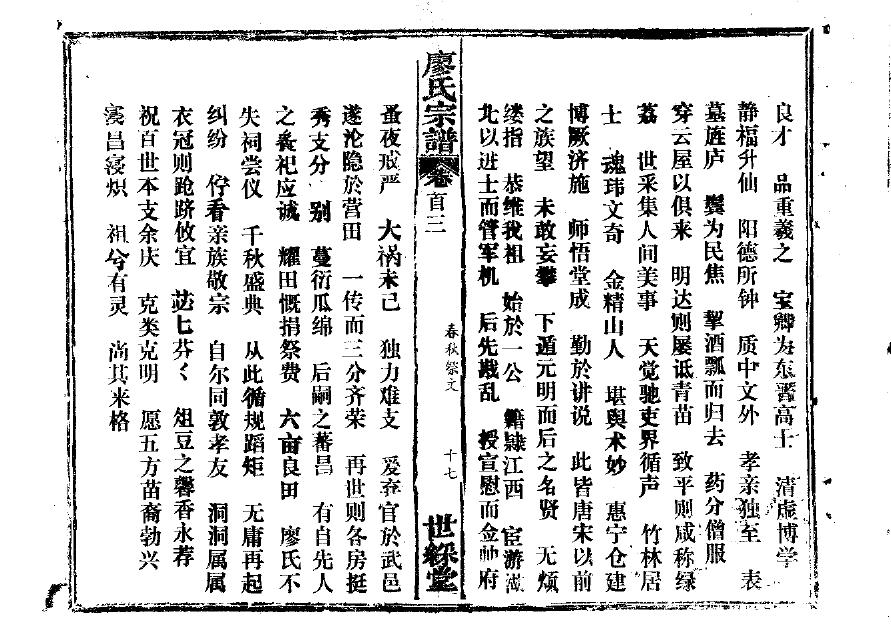 良才 品重羲之 宝卿为东晋高士 清虚博学
静福升仙 阳德所钟 质中文外 孝亲独至 表
墓旌庐 爨为民焦 挈酒瓢而归去 药分僧服
穿云屋以俱来 明达则屡诋青苗 致平则咸称绿
荔 世采集人间美事 天觉驰吏界循声 竹林居
士 魂玮文奇 金精山人 堪舆术妙 惠宁仓建
博厥济施 师悟堂成 勤於讲说 此皆唐宋以前
之族望 未敢妄攀 下遁元明而后之名贤 无烦
缕指 恭维我祖 始於一公 籍隶江西 宦游湖
北以进士而管军机 后先戡乱 授宣慰而金帅府
廖氏宗譜 卷首三 春秋祭文 十七 世綵堂
蚤夜戒严 大祸未已 独力难支 爰弃官於武邑
遂沦隐於营田 一传而三分齐荣 再世则各房挺
秀支分 别 蔓衍瓜绵 后嗣之蕃昌 有自先人
之 祀应诚 耀田慨捐祭费 六亩良田 廖氏不
失祠尝仪 千秋盛典 从此循规蹈矩 无庸再起
纠纷 伫看亲族敬宗 自尔同敦孝友 洞洞属属
衣冠则跄跻攸宜 苾匕芬く 俎豆之馨香永荐
祝百世本支余庆 克类克明 愿五方苗裔勃兴
寖昌寖炽 祖兮有灵 尚其来格